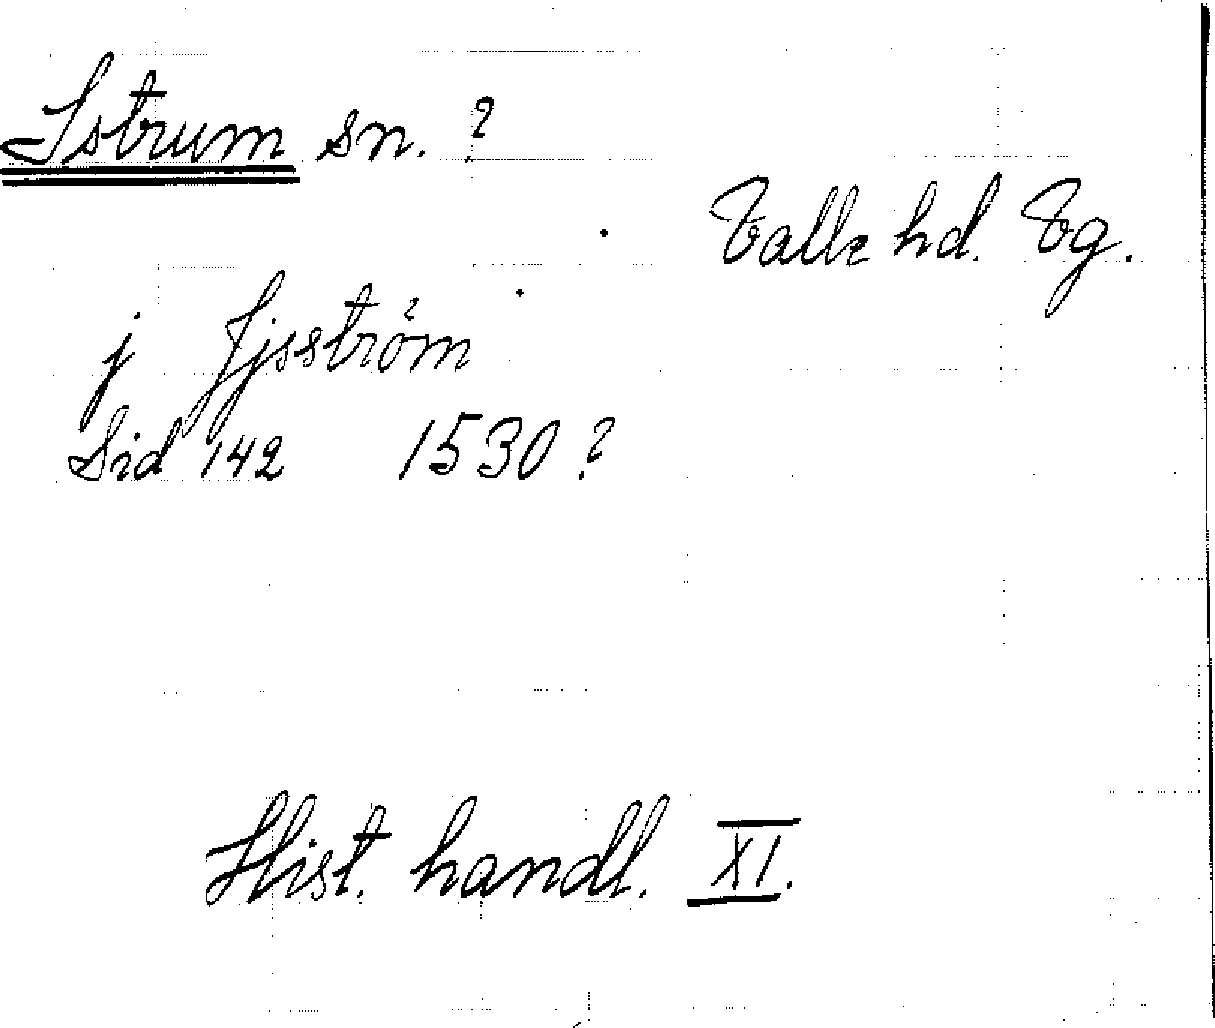 Istrum sn. ?
Valle hd. Vg.
j Jjsström
Sid 142 1530 ?
Hist. handl. XI.